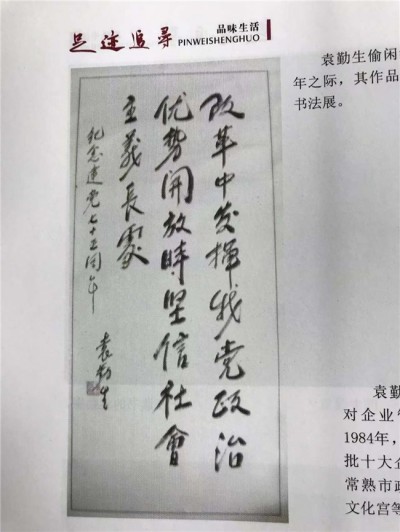 足迹追寻
品味生活
PINWEISHENGHUO
袁勤生偷闲
年之际，其作品
书法展。
改革中发挥我党政治
优势開放時坚信社會
主義長處
纪念建党七十五周年
袁勤生
袁勤
对企业管
1984年，
批十大企
常熟市政
文化宫等